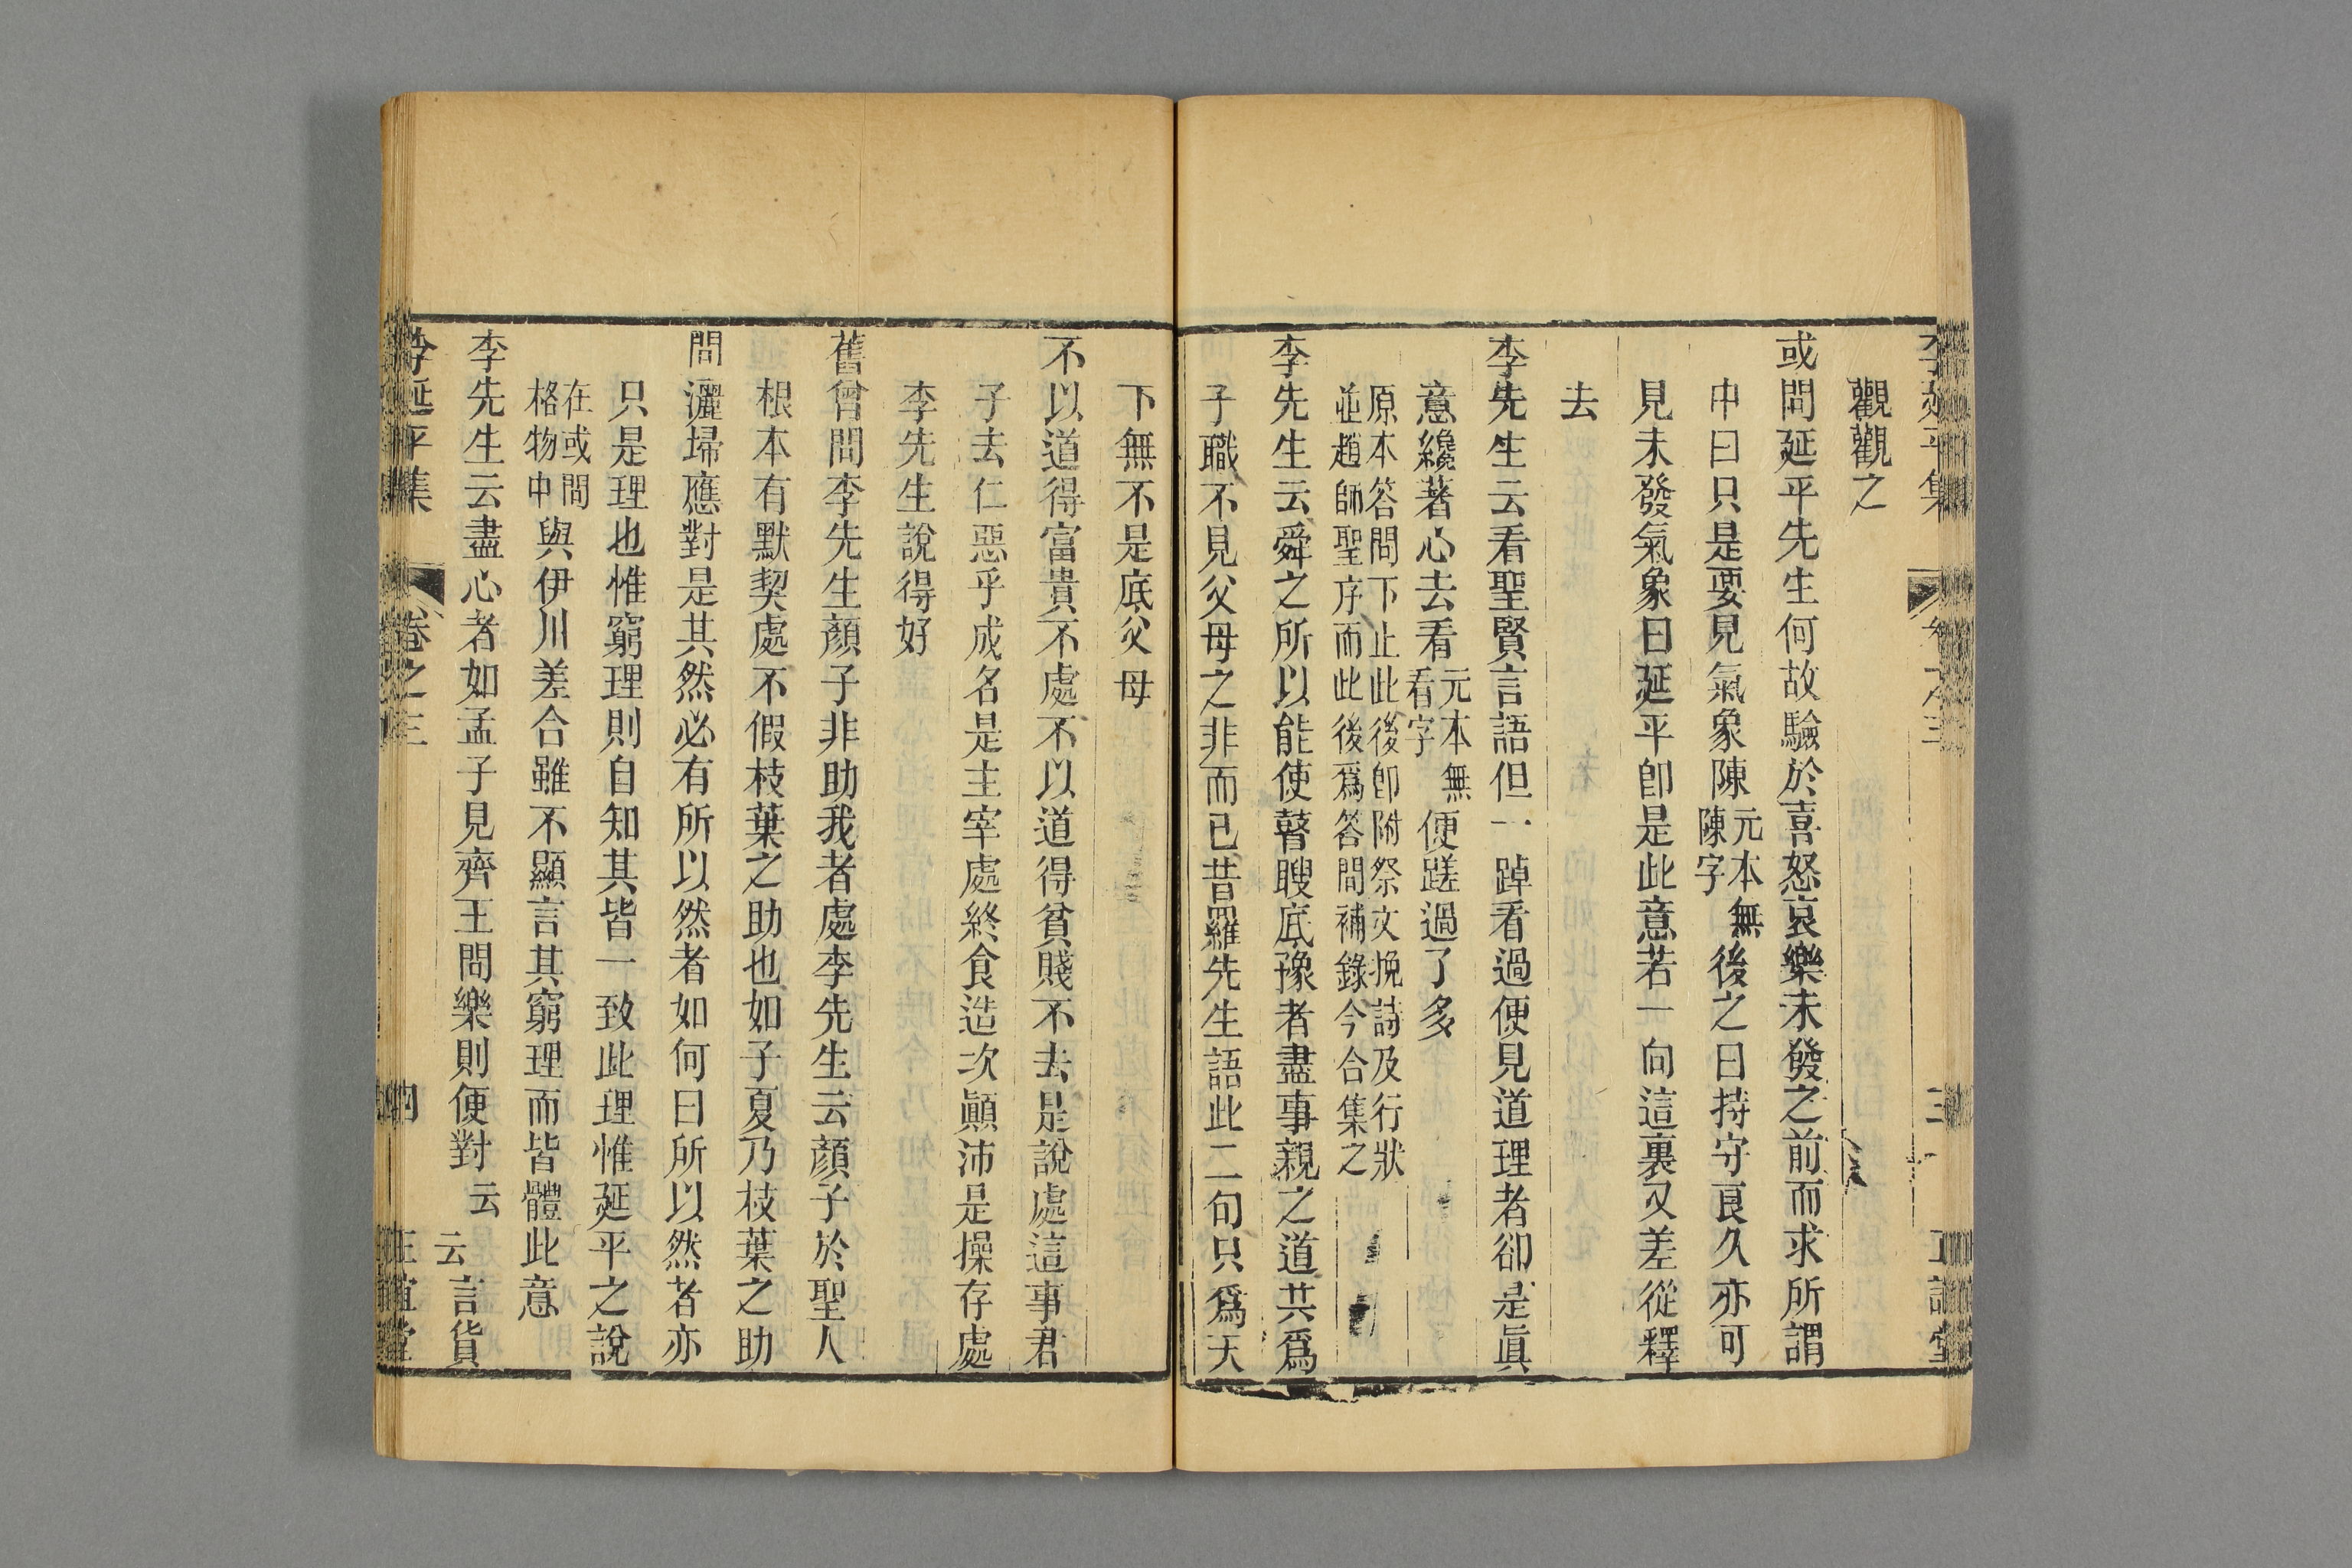 觀觀之
或問延平先生何故驗於喜怒哀樂未發之前而求所謂
中曰只是要見氣象陳元本無陳字後之曰持守良久亦可
見未發氣象曰延平卽是此意若一向這裏又差從釋
去
李先生云看聖賢言語但一踔看過便見道理者卻是眞
意纔著心去看元本無看字便蹉過了多
原本答問下止此後卽附祭文挽詩及行狀
並趙師聖序而此後爲答問補錄今合集之
李先生云舜之所以能使瞽瞍底豫者盡事親之道共爲
子職不見父母之非而已昔羅先生語此二句只爲天
下無不是底父母
不以道得富貴不處不以道得貧賤不去是說處這事君
子去仁惡乎成名是主宰處終食造次顚沛是操存處
李先生說得好
舊曾問李先生顏子非助我者處李先生云顏子於聖人
根本有默契處不假枝葉之助也如子夏乃枝葉之助
問灑埽應對是其然必有所以然者如何曰所以然者亦
只是理也惟窮理則自知其皆一致此理惟延平之說
在或問格物中與伊川差合雖不顯言其窮理而皆體此意
李先生云盡心者如孟子見齊王問樂則便對云云言貨
李延平集 卷之三 四 正誼堂